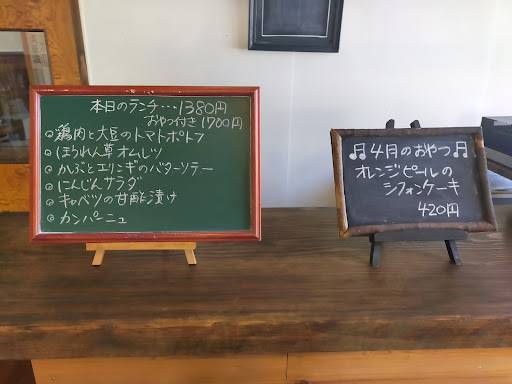 本日のランチ…1380円
おやつ付き 1700円
◎鶏肉と大豆のトマトポトフ
◎ほうれん草オムレツ
◎かぶとエリンギのバターソテー
◎にんじんサラダ
◎キャベツの甘酢漬け
◎カンパーニュ
♫4月のおやつ♫
オレンジピールの
シフォンケーキ
420円